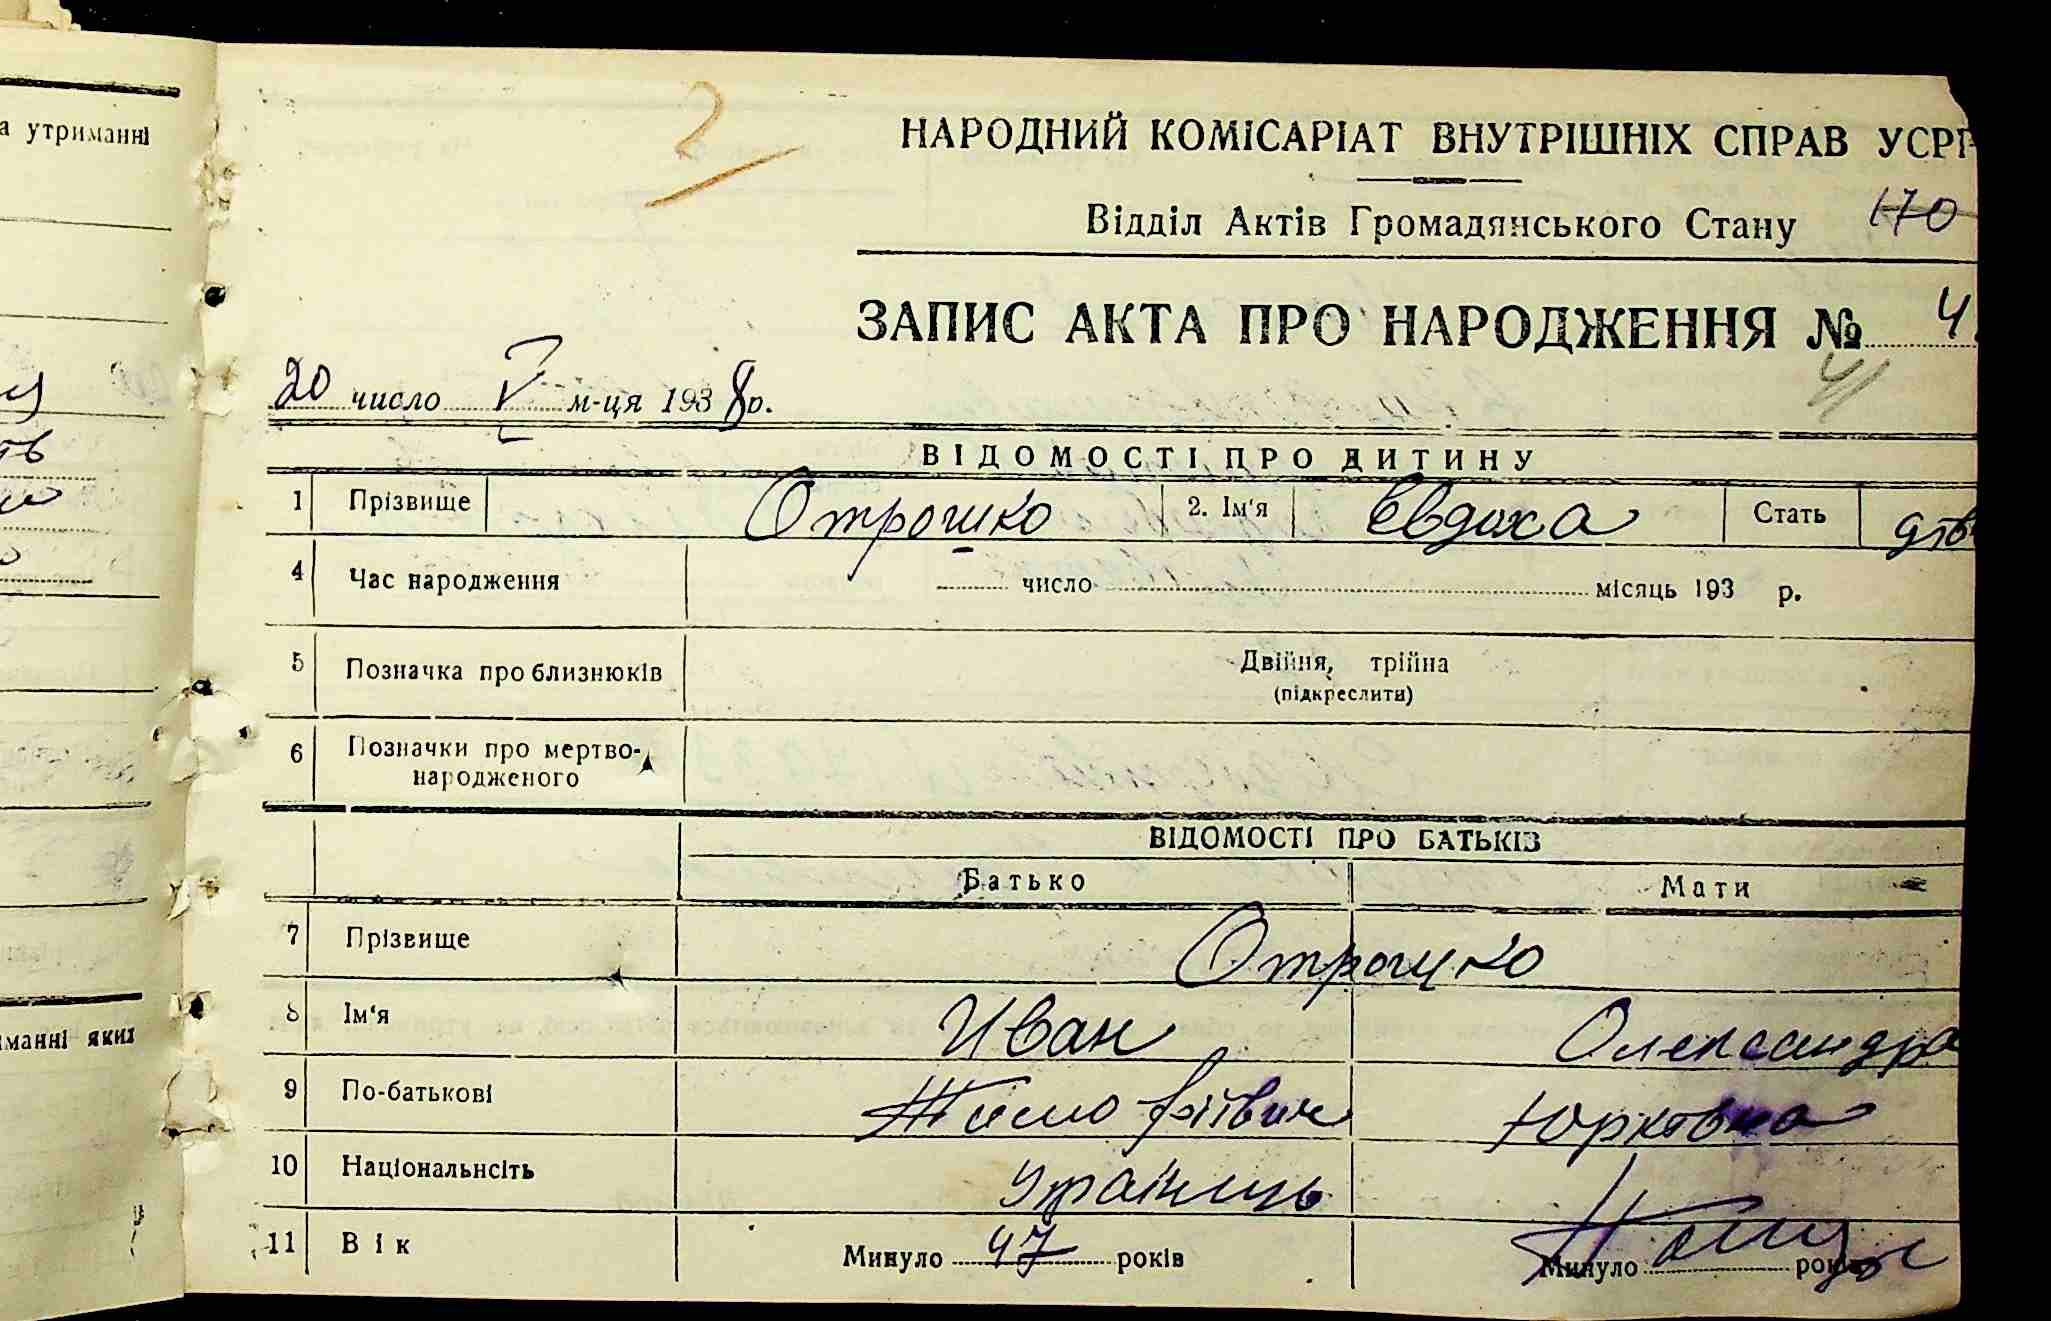 а утриманні
иманні яких
2
НАРОДНИЙ КОМІСАРІАТ ВНУТРІШНІХ СПРАВ УСРР
Відділ Актів Громадянського Стану 170
ЗАПИС АКТА ПРО НАРОДЖЕННЯ № 4
41
20 число V м-ця 1938 р.
ВІДОМОСТІ ПРО ДИТИНУ
1 Прізвище Отрошко 2. Ім'я Євдоха Стать дів
4 Час народження число місяць 193 р.
5 Позначка про близнюків Двійня, трійна
(підкреслити)
6 Позначки про мертво-
народженого
ВІДОМОСТІ ПРО БАТЬКІВ
Батько Мати
7 Прізвище Отрошко
8 Ім'я Иван Олександра
9 По-батькові Тимофіївич Юрківна
10 Національність украінець
11 Вік Минуло 47 років Минуло років